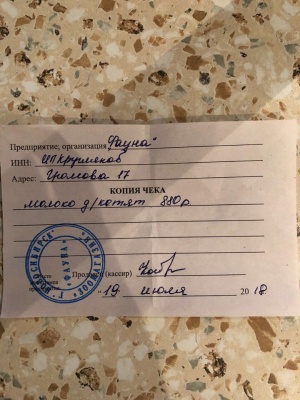 Предприятие, организация "Фауна"
ИНН: ИП Кругляков
Адрес: Громова 17
КОПИЯ ЧЕКА
молоко д/котят 880р
Продавец (кассир)
"19 июля 2018
Г. НОВОСИБИРСК
"ФАУНА"